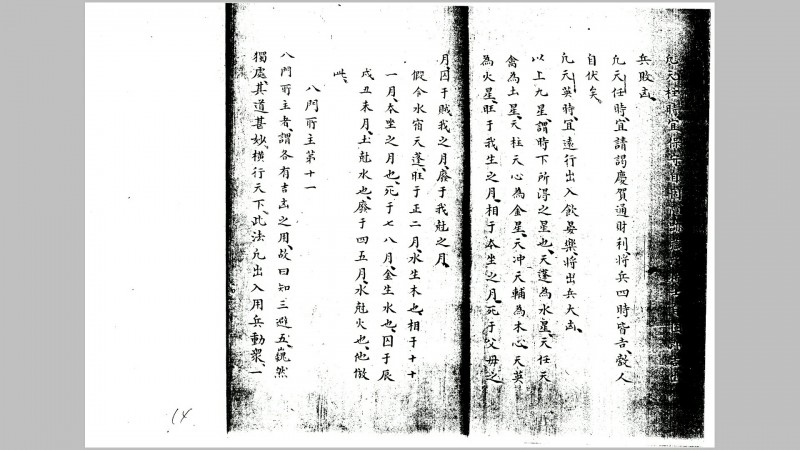 凢天柱時宜
兵敗凶
凢天任時宜請謁慶賀通財利將兵四時皆吉敵人
自伏矣
凢天英時宜遠行出入飲宴樂將出兵大凶
以上九星謂時下所得之星也天蓬為水星天任天
禽為土星天柱天心為金星天冲天輔為木心天英
為火星旺于我生之月相于本坐之月死于父母之
月囚于賊我之月廢于我尅之月
假令水宿天蓬旺于正二月水生木也相于十十
一月本坐之月也死于七八月金生水也囚于辰
戌丑未月土尅水也廢于四五月水尅火也他倣
此
八門所主第十一
八門所主者謂各有吉凶之用故曰知三避五巍然
獨處其道甚妙橫行天下此法凢出入用兵動衆一
14